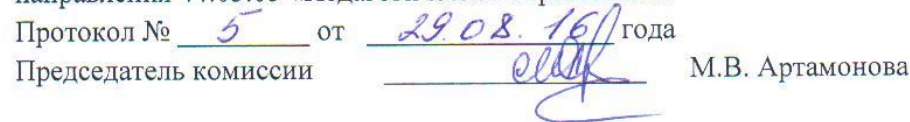 Протокол № 5 от 29.08.16 года
Председатель комиссии М.В. Артамонова